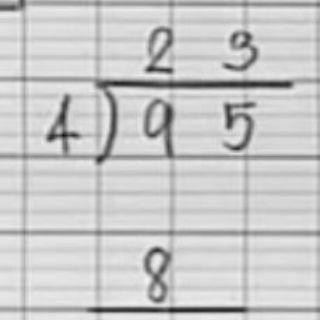 2 3
4 ) 9 5
8